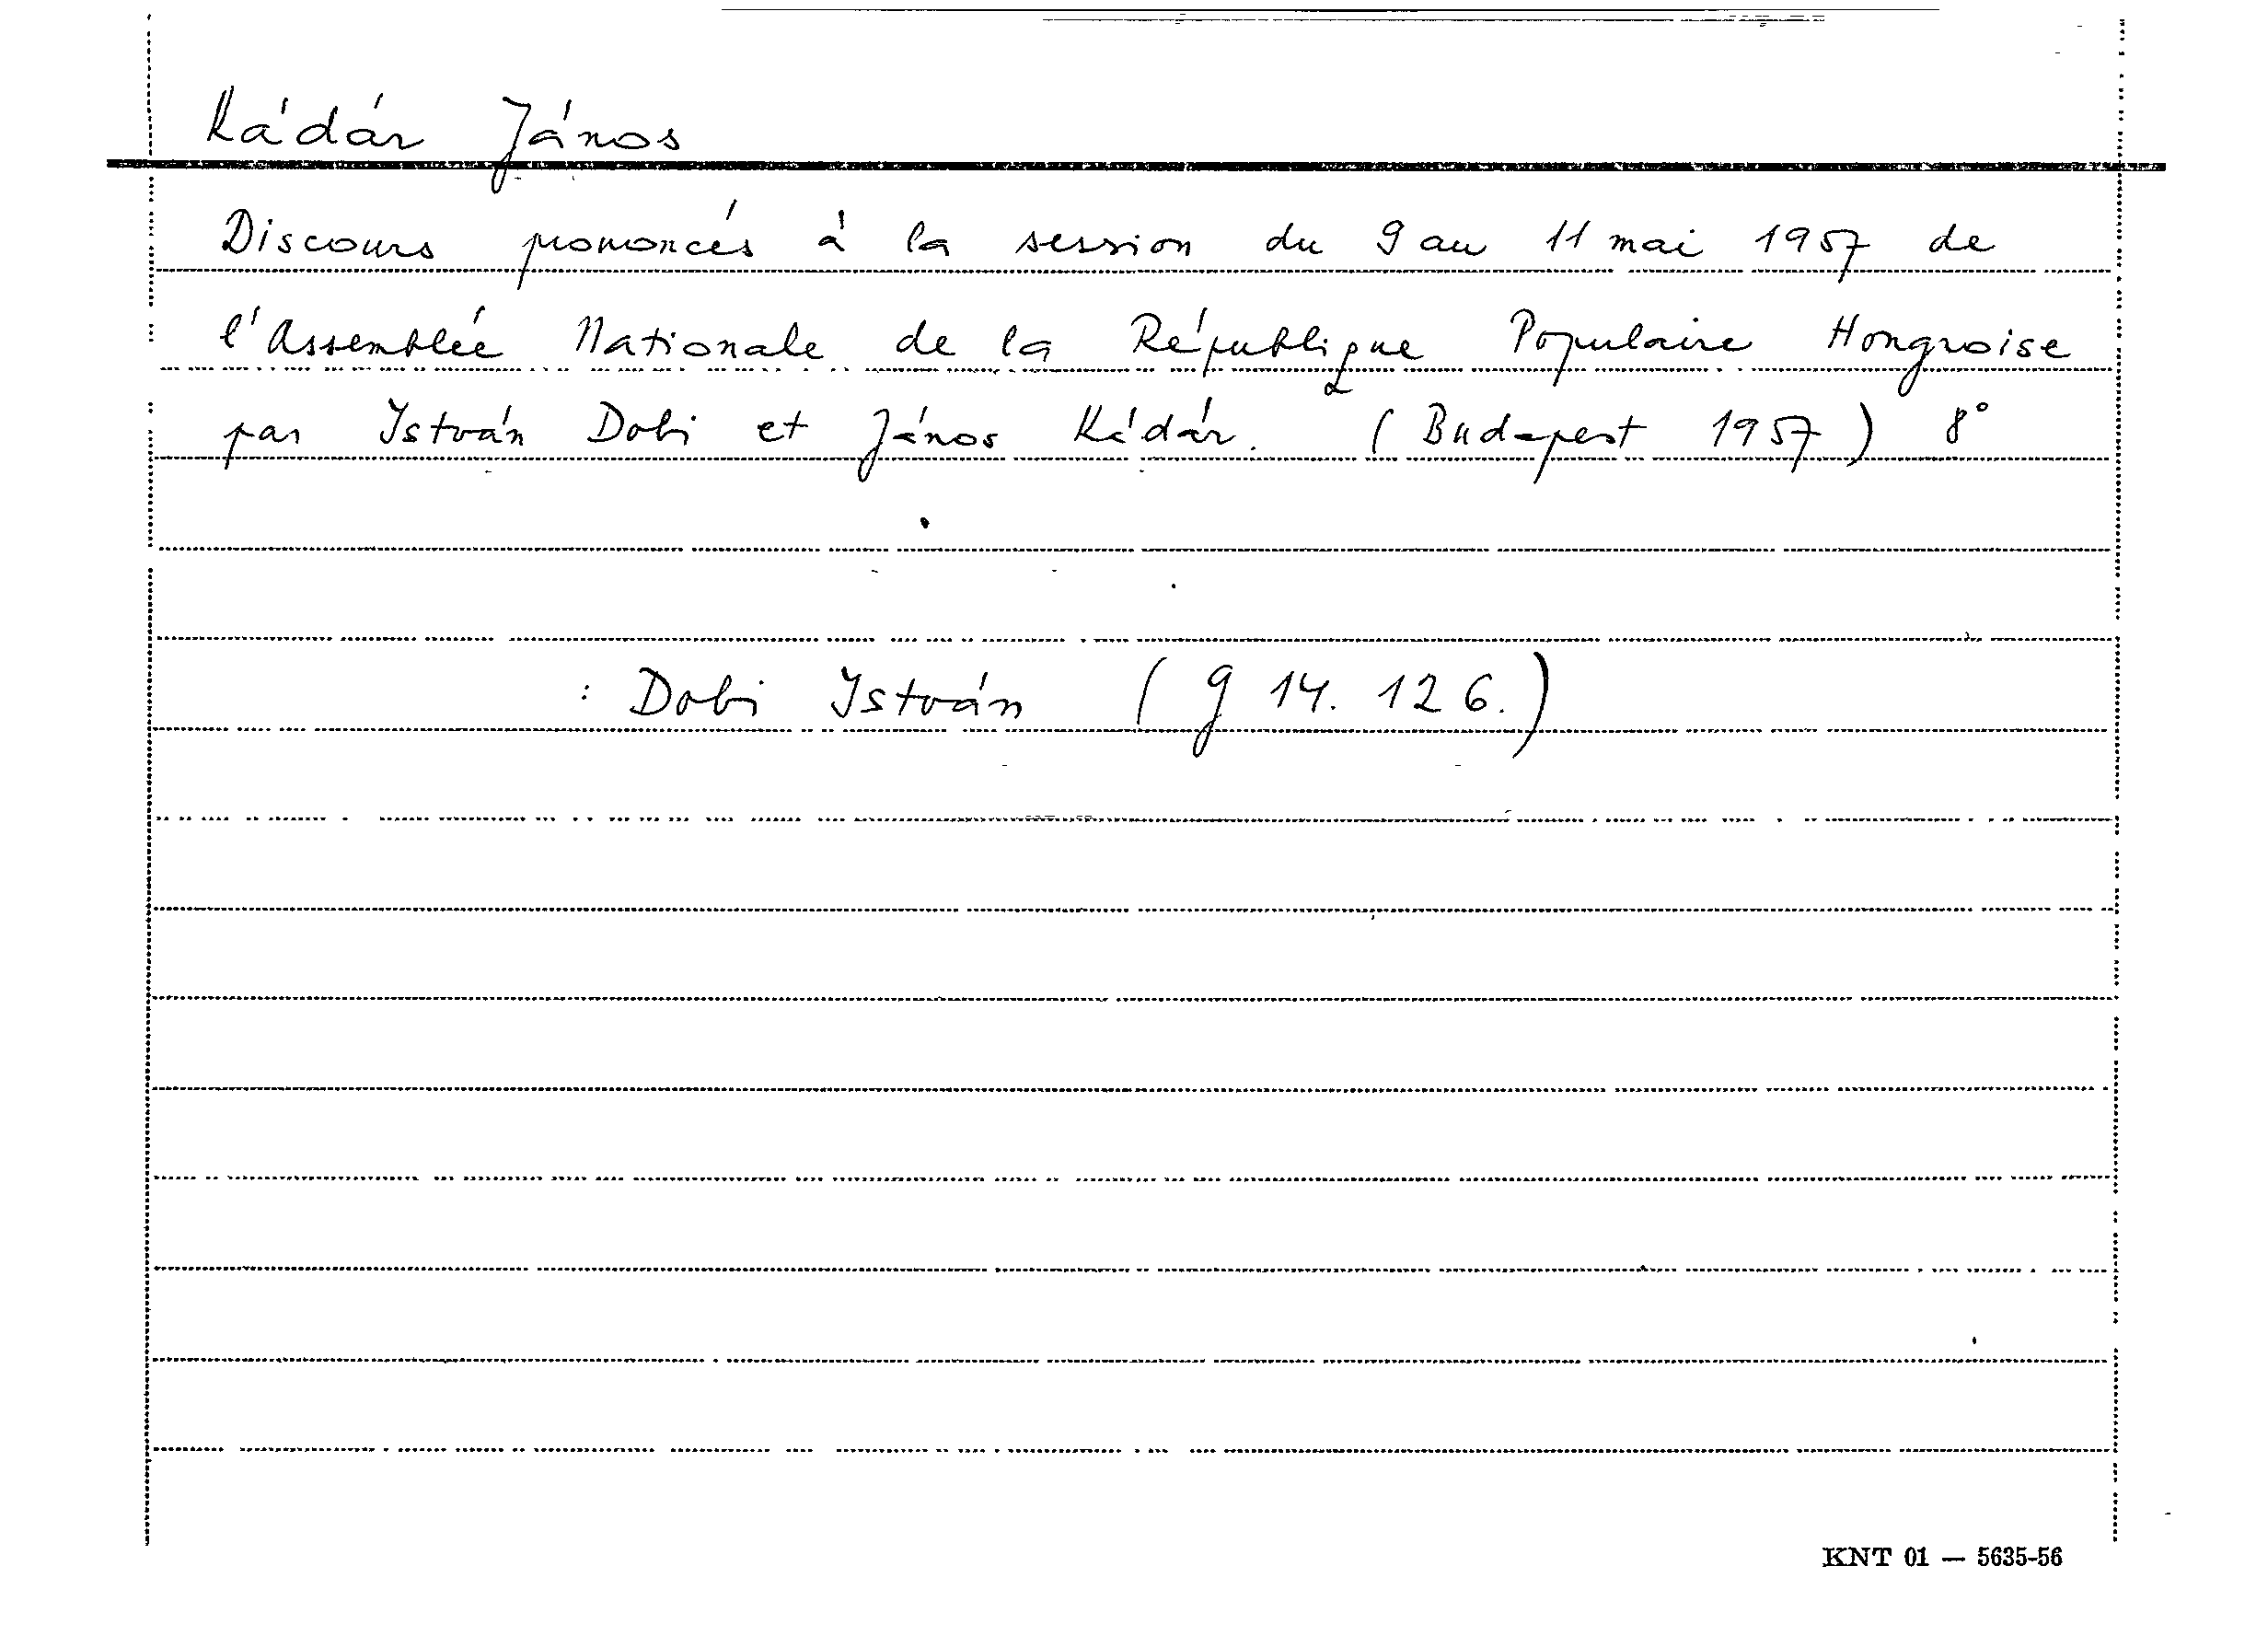 Kádár János
Discours prononcés à la session du 9 au 11 mai 1957 de
l'Assemblée Nationale de la République Populaire Hongroise
par István Dobi et János Kádár. (Budapest 1957) 8°
: Dobi István (g 14. 126.)
KNT 01 — 5635-56